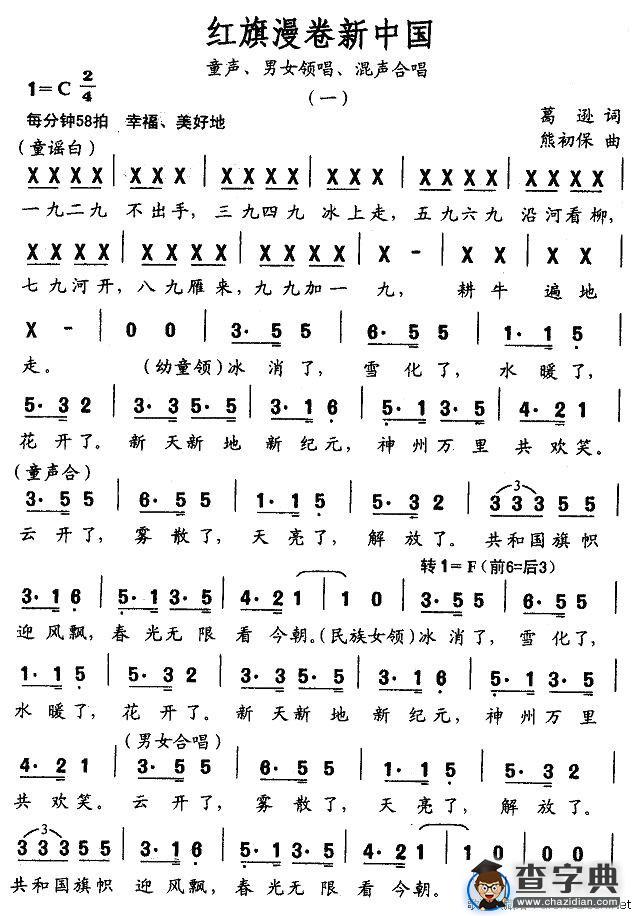 红旗漫卷新中国
童声、男女领唱、混声合唱
(一)
1=C 2/4
每分钟58拍 幸福、美好地
葛 逊 词
熊初保 曲
(童谣白)
X X X X | X X X | X X X X | X X X | X X X X | X X X X |
一九二九 不出手, 三九四九 冰上走, 五九六九 沿河看柳,
X X X X | X X X X | X X X X | X - | X X | X X |
七九河开, 八九雁来, 九九加一 九, 耕牛 遍地
X - | 0 0 | 3· 5 5 | 6· 5 5 | 1· 1 5 |
走。 (幼童领)冰消了, 雪化了, 水暖了,
5· 3 2 | 3· 3 5· 5 | 3· 1 6 | 5· 1 3· 5 | 4· 2 1 |
花开了。 新天新地 新纪元, 神州万里 共欢笑。
(童声合)
3· 5 5 | 6· 5 5 | 1· 1 5 | 5· 3 2 | 3 3 3 5 5 |
云开了, 雾散了, 天亮了, 解放了。 共和国旗帜
转1=F(前6=后3)
3· 1 6 | 5· 1 3· 5 | 4· 2 1 | 1 0 | 3· 5 5 | 6· 5 5 |
迎风飘, 春光无限 看今朝。(民族女领)冰消了, 雪化了,
1· 1 5 | 5· 3 2 | 3· 3 5· 5 | 3· 1 6 | 5· 1 3· 5 |
水暖了, 花开了。 新天新地 新纪元, 神州万里
(男女合唱)
4· 2 1 | 3· 5 5 | 6· 5 5 | 1· 1 5 | 5· 3 2 |
共欢笑。 云开了, 雾散了, 天亮了, 解放了。
3 3 3 5 5 | 3· 1 6 | 5· 1 3· 5 | 4· 2 1 | 1 0 | 0 0 |
共和国旗帜 迎风飘, 春光无限 看今朝。
查字典
www.chazidian.com